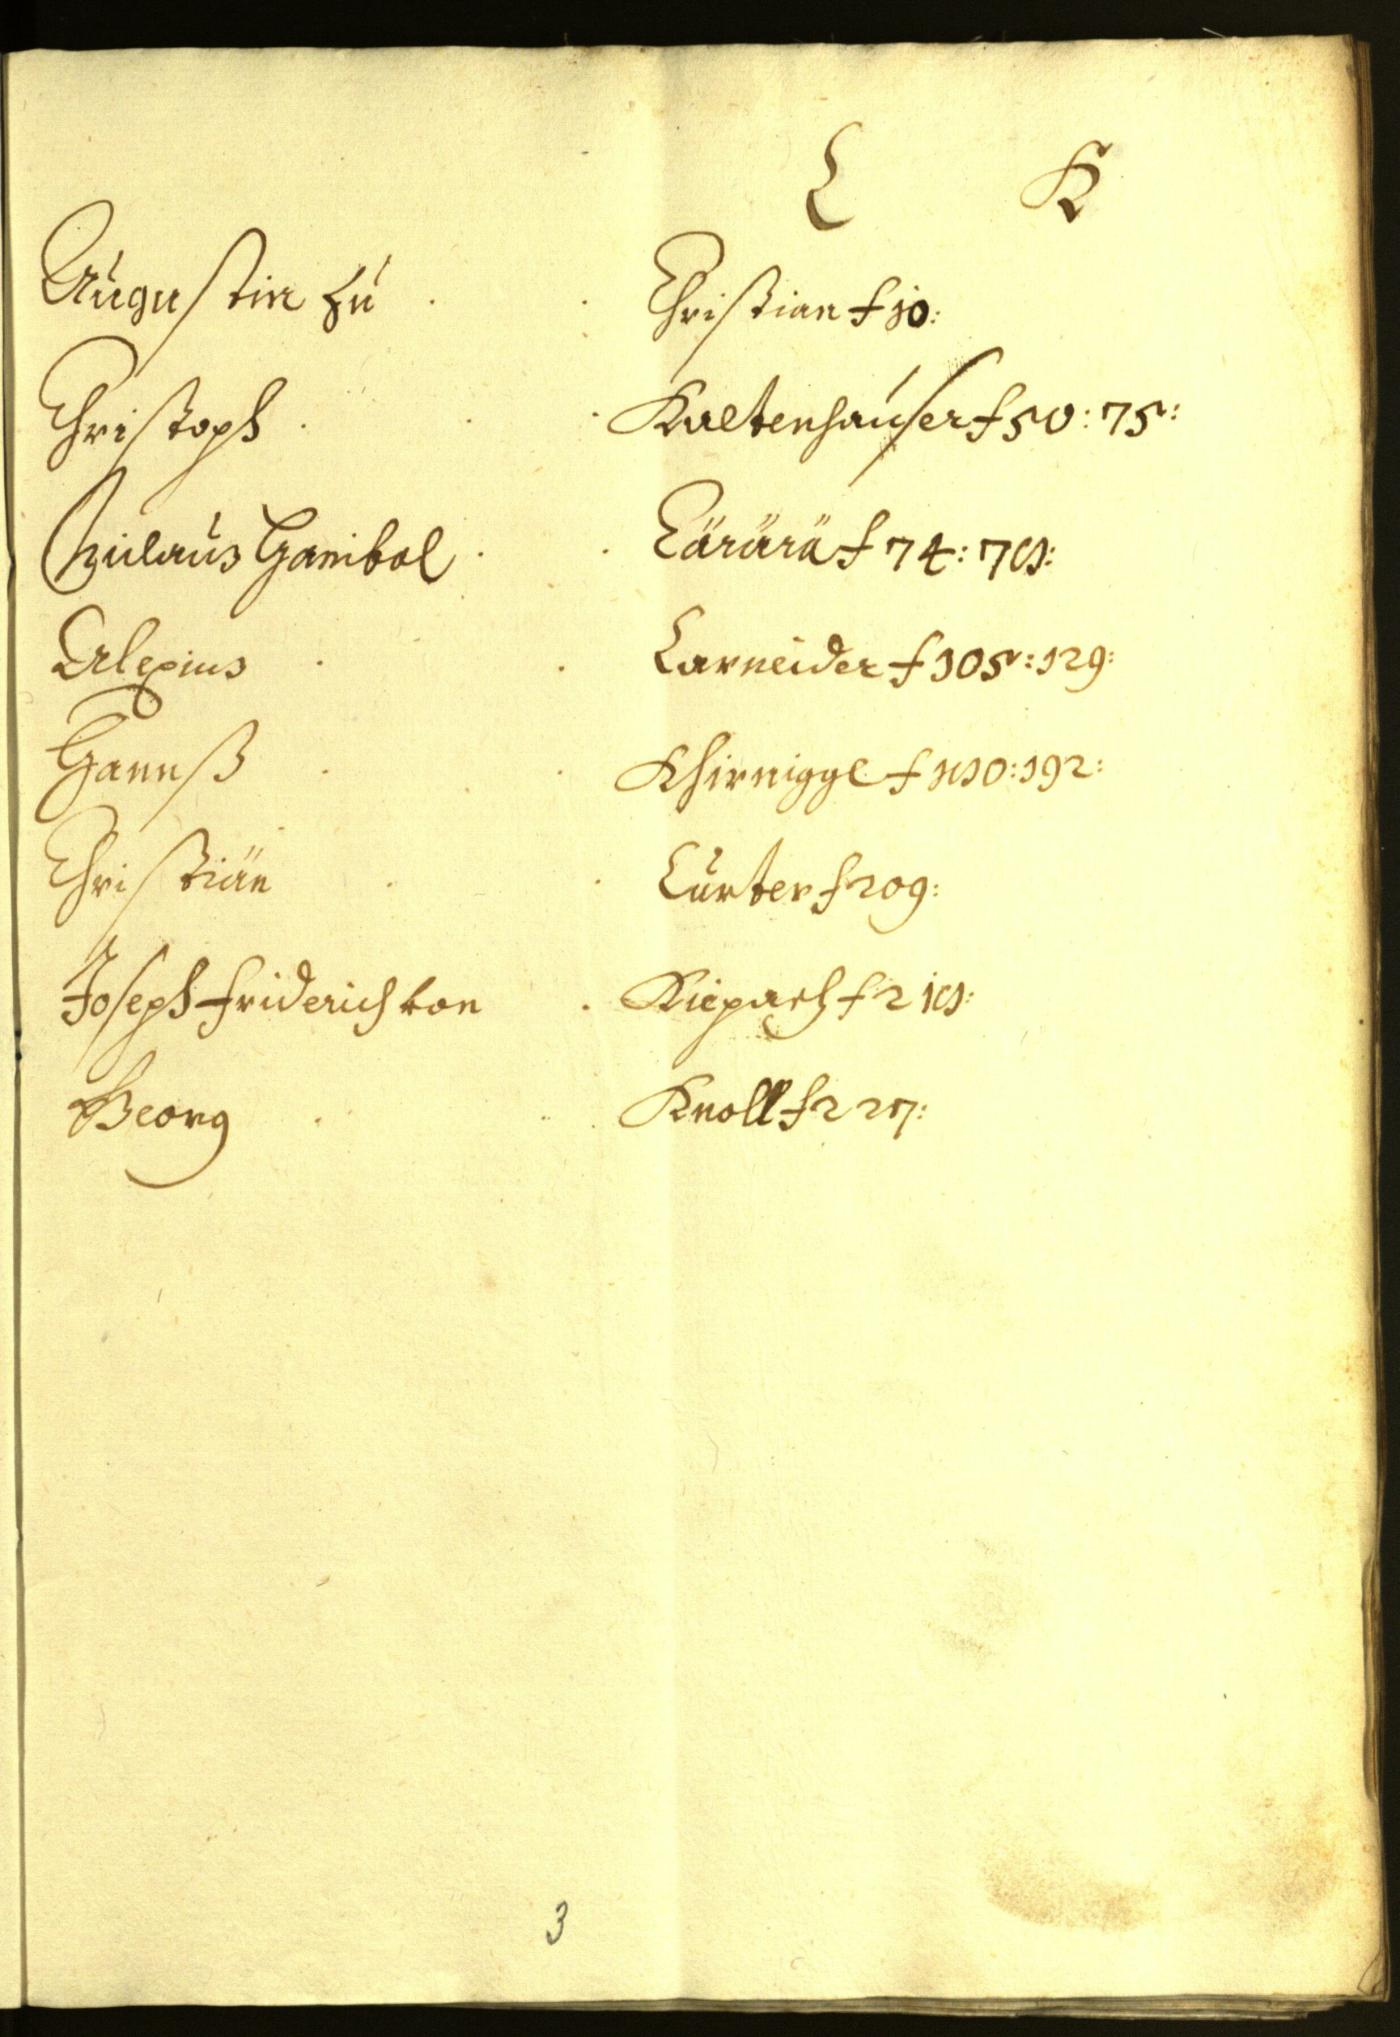 C K
Augustin zu Christian f 10:
Christoph Kaltenhauser f 50: 75:
Hanibal Cärärä f 74: 76:
Alexius Carneider f 105: 129:
Hannß Khirnigge f 192:
Christiän Curter f 209:
Joseph Friderich von Kiepach f 216:
Georg Knoll f 227:
3